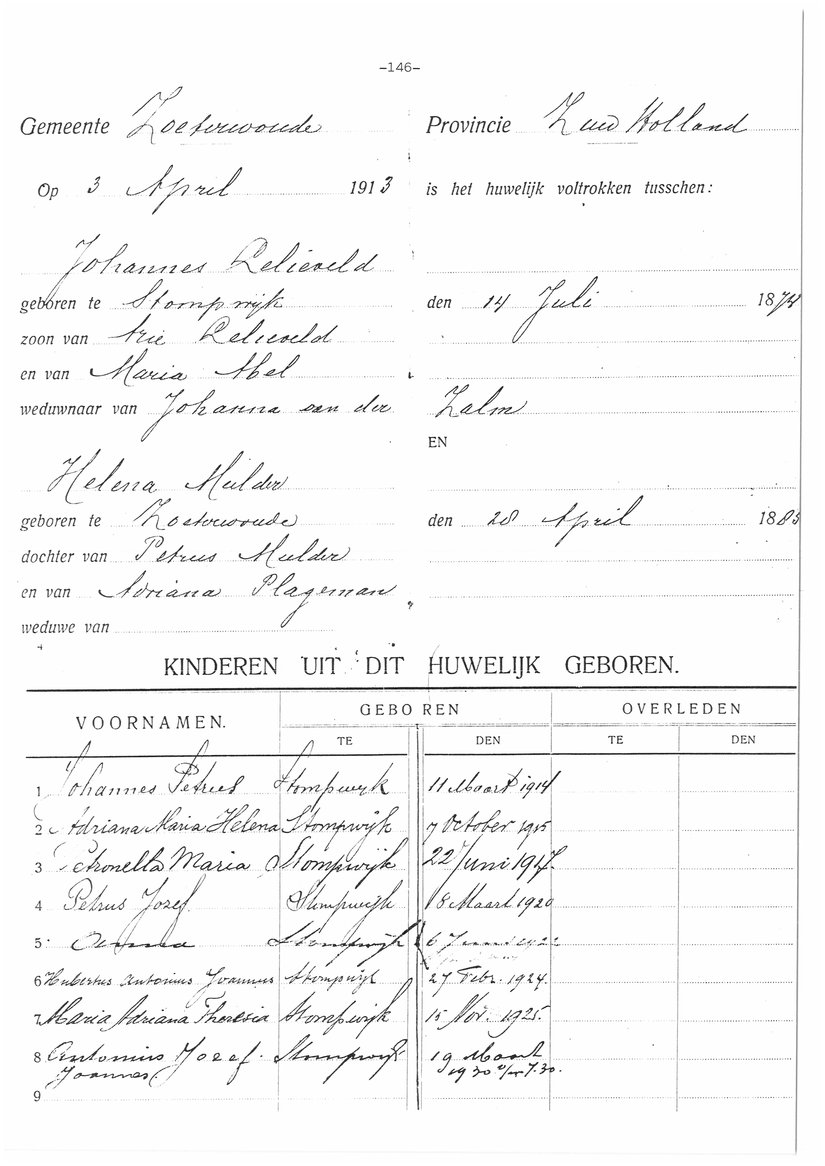 -146-
Gemeente Zoeterwoude Provincie Zuid Holland
Op 3 April 1913 is het huwelijk voltrokken tusschen:
Johannes Lelieveld
geboren te Stompwijk den 14 Juli 1874
zoon van Arie Lelieveld
en van Maria Abel
weduwnaar van Johanna van der Zalm
EN
Helena Mulder
geboren te Zoeterwoude den 28 April 1883
dochter van Petrus Mulder
en van Adriana Plageman
weduwe van
KINDEREN UIT DIT HUWELIJK GEBOREN.
VOORNAMEN. GEBOREN OVERLEDEN
TE DEN TE DEN
1 Johannes Petrus Stompwijk 11 Maart 1914
2 Adriana Maria Helena Stompwijk 7 October 1915
3 Petronella Maria Stompwijk 22 Juni 1917.
4 Petrus Jozef Stompwijk 18 Maart 1920
5. Anna Stompwijk 6 Juni 1922
6 Hubertus Antonius Joannus Stompwijk 27 Febr. 1924.
7 Maria Adriana Theresia Stompwijk 15 Nov. 1925.
8 Antonius Jozef. Stompwijk 19 Maart
Joannes. 1930 7.30.
9